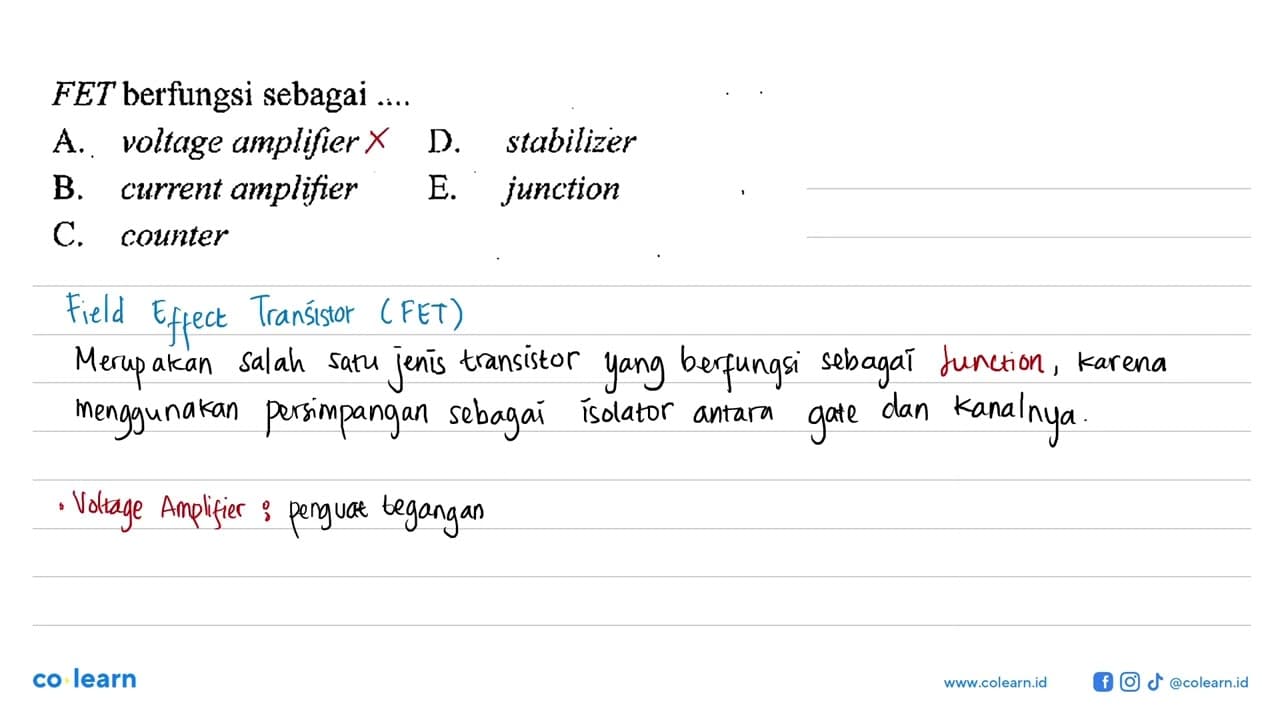 FET berfungsi sebagai ....
A. voltage amplifier X D. stabilizer
B. current amplifier E. junction
C. counter
Field Effect Transistor (FET)
Merupakan salah satu jenis transistor yang berfungsi sebagai Junction, karena
menggunakan persimpangan sebagai isolator antara gate dan kanalnya.
• Voltage Amplifier : penguat tegangan
co learn
www.colearn.id @colearn.id